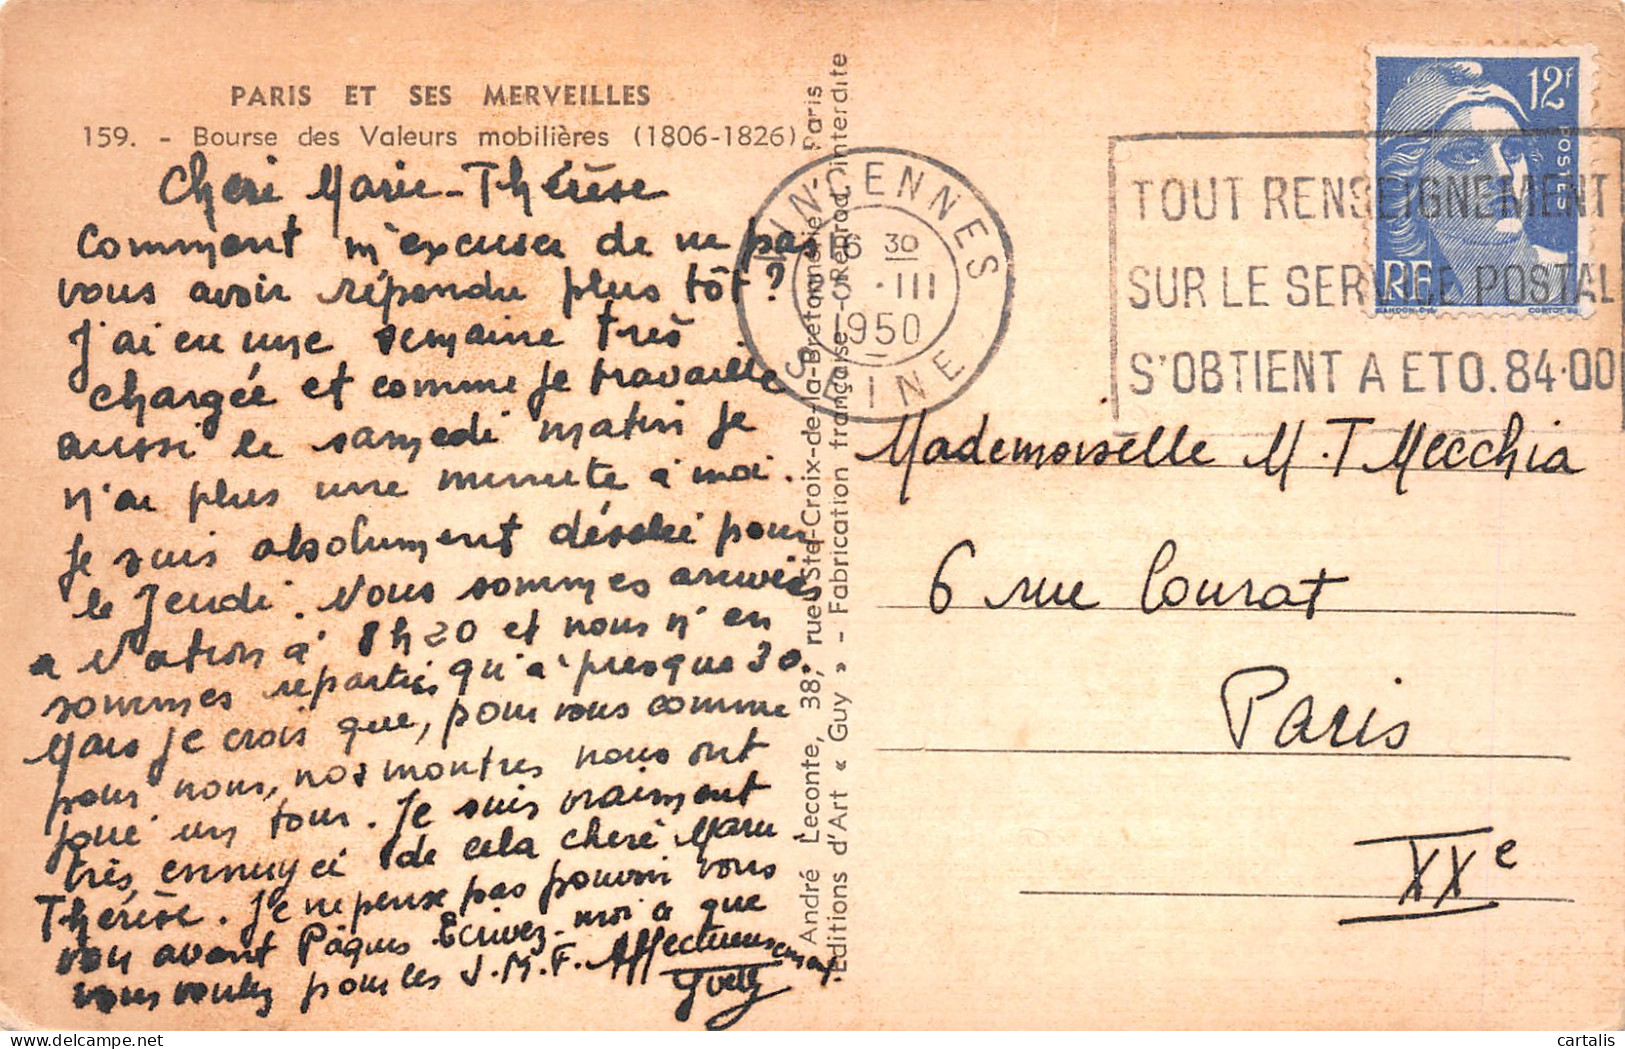 PARIS ET SES MERVEILLES
159. - Bourse des Valeurs mobilières (1806-1826)
Chère Marie-Thérèse
comment m'excuser de ne pas
vous avoir répondu plus tôt?
J'ai eu une semaine très
chargée et comme je travaille
aussi le samedi matin je
n'ai plus une minute à moi.
Je suis absolument désolée pour
le Jeudi. Nous sommes arrivées
a Nation à 8h20 et nous n'en
sommes reparties qu'à presque 30.
Mais je crois que, pour vous comme
pour nous, nos montres nous ont
joué un tour. Je suis vraiment
très ennuyée de cela chère Marie
Thérèse. Je ne pense pas pouvoir vous
voir avant Pâques Ecrivez-moi ce que
vous voulez pour les J.M.F. Affectueusement
André Leconte, 38, rue Ste-Croix-de-la-Bretonnerie - Paris
Editions d'Art « Guy » - Fabrication française - Reprod. interdite
VINCENNES
16 30
III
1950
SEINE
TOUT RENSEIGNEMENT
SUR LE SERVICE POSTAL
S'OBTIENT A ETO. 84-00
12F
POSTES
RF
GANDON DEL
CORTOT SC
Mademoiselle M.T Mecchia
6 rue Courat
Paris
XXe
cartalis